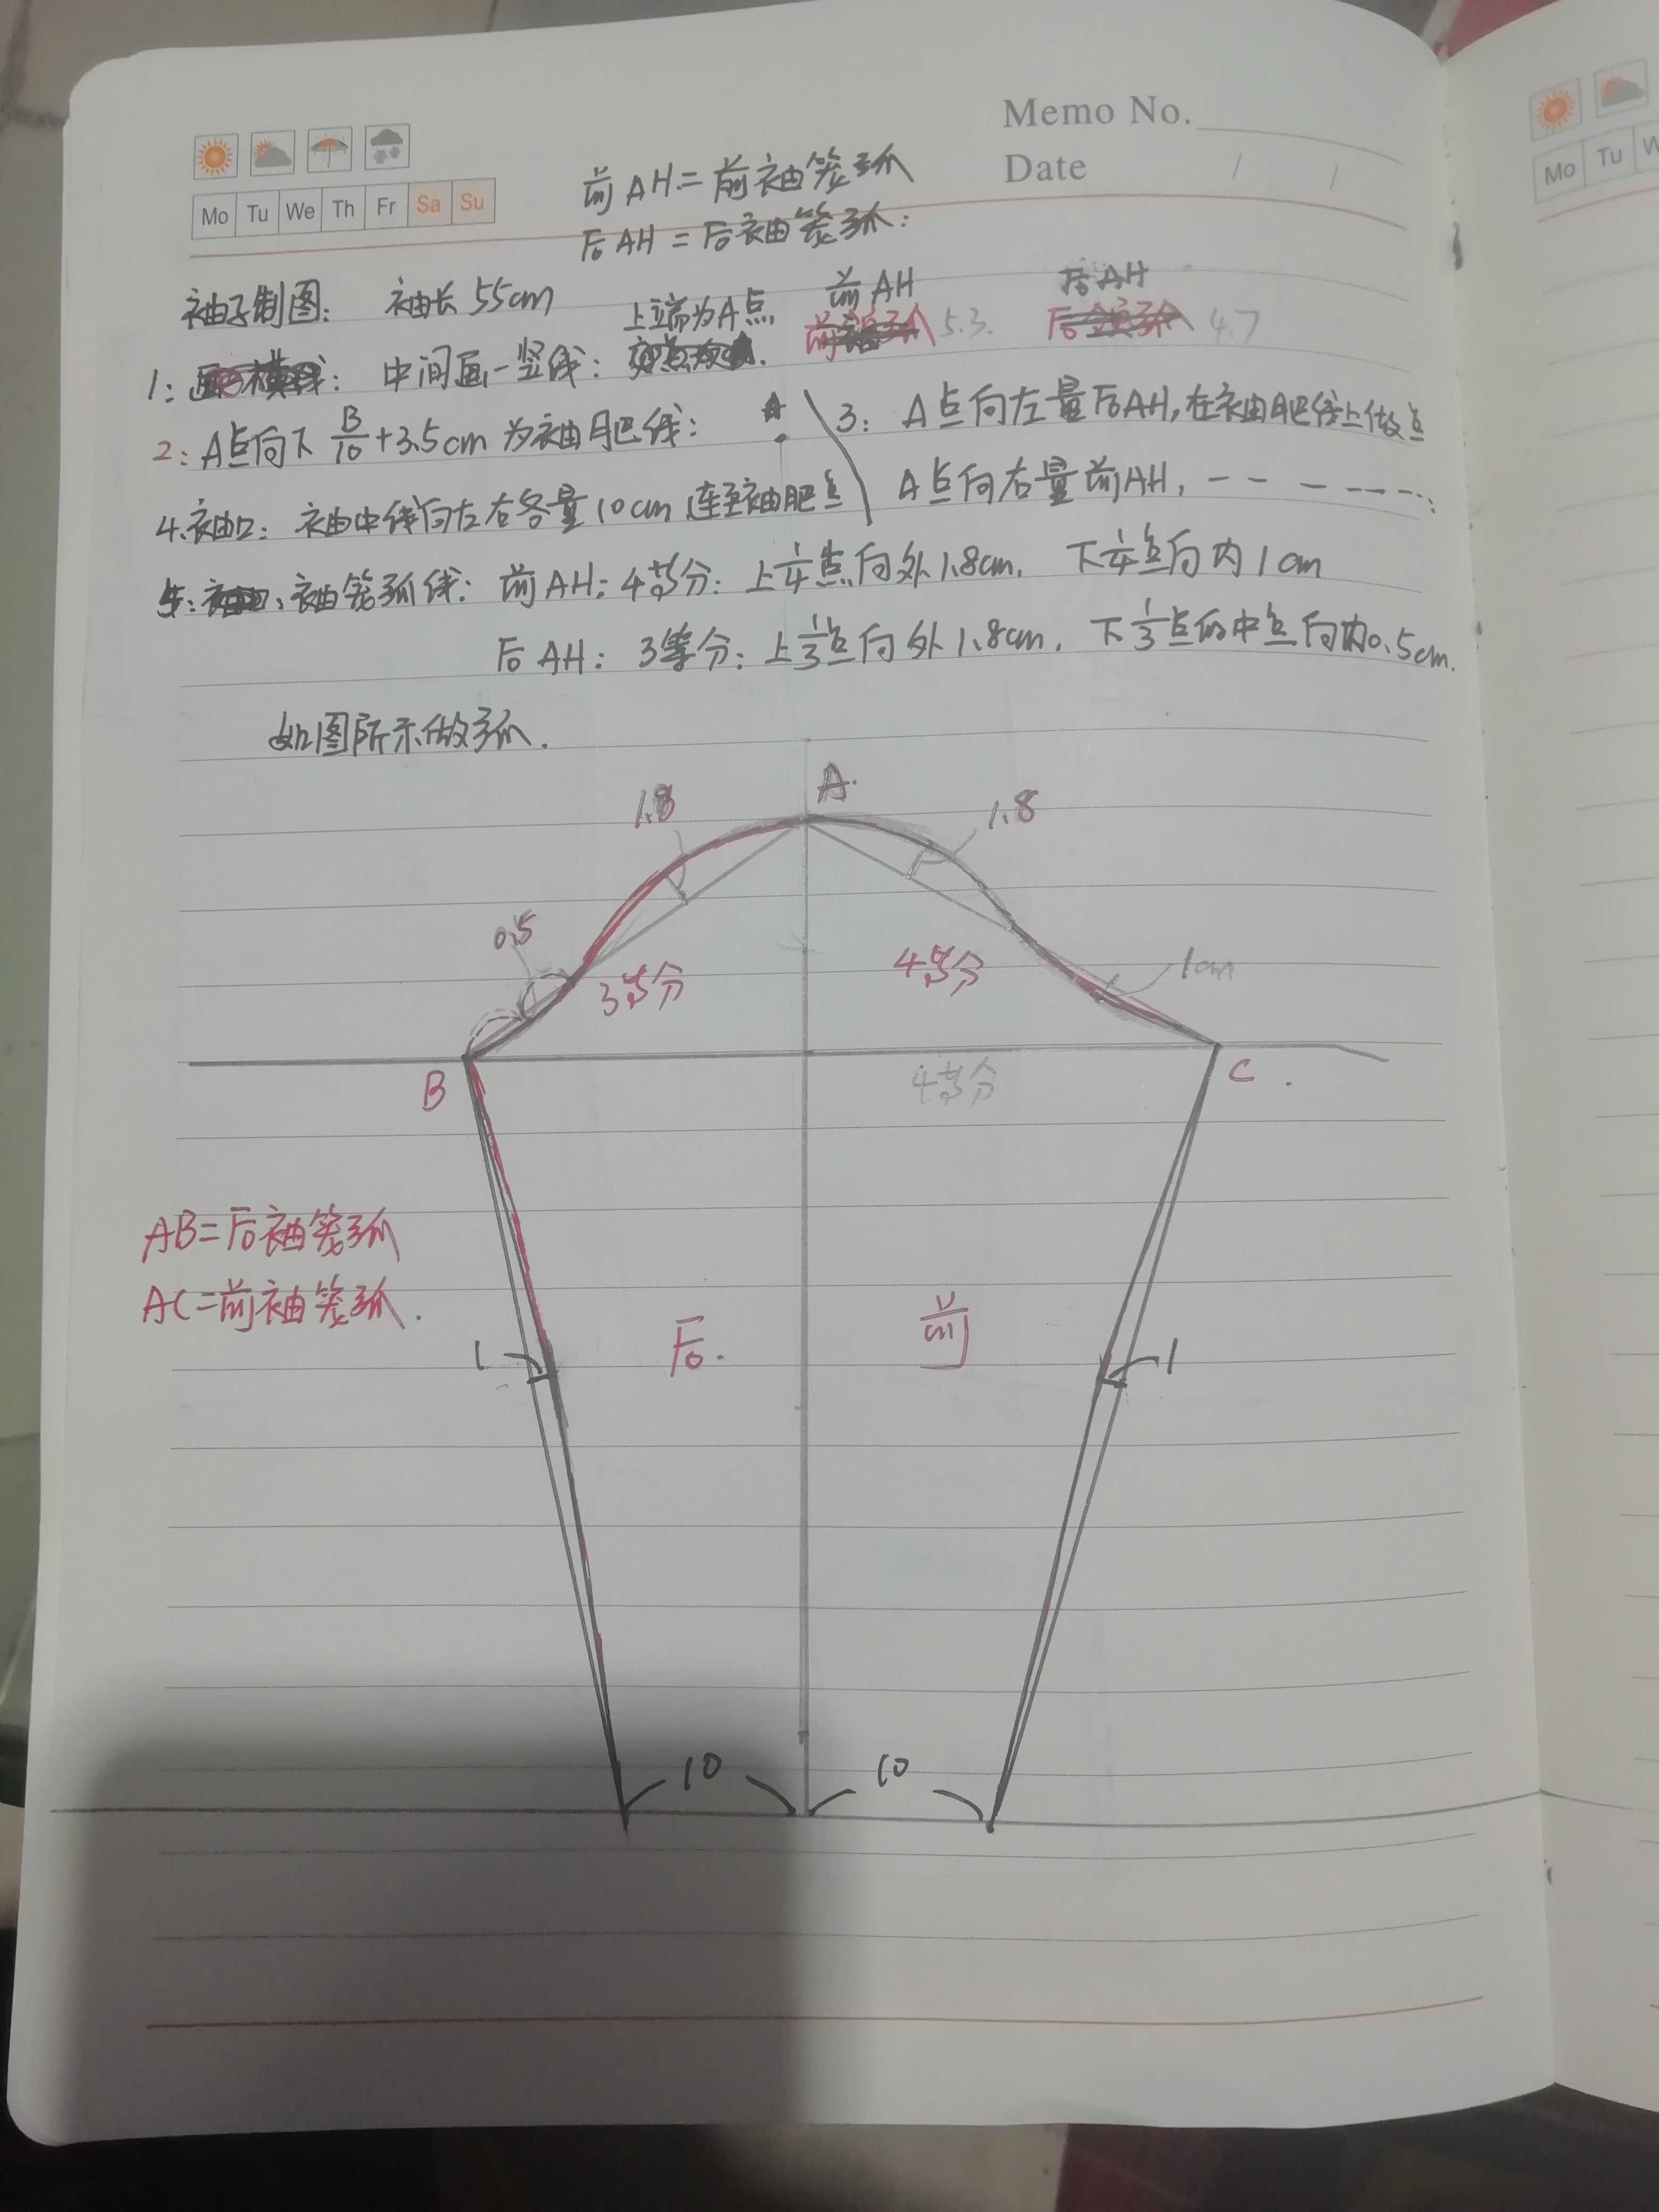 Memo No.
Date / /
Mo Tu We Th Fr Sa Su
Mo Tu W
前AH=前袖笼弧
后AH=后袖笼弧:
袖子制图: 袖长55cm 上端为A点 前AH 5.3. 后AH 4.7
1: 中间画一竖线:
2: A点向下 B/10 +3.5cm 为袖肥线: A
3: A点向左量后AH,在袖肥线上做点
A点向右量前AH, - - - - - -
4.袖口: 袖中线向左右各量10cm 连至袖肥点
5: 袖笼弧线: 前AH: 4等分: 上1/4点向外1.8cm. 下1/4点向内1cm
后AH: 3等分: 上1/3点向外1.8cm. 下1/3点的中点向内0.5cm.
如图所示做弧.
A.
1.8 1.8
0.5
3等分 4等分 1cm
B 4等分 C.
AB=后袖笼弧
AC=前袖笼弧.
后. 前
1 1
10 10